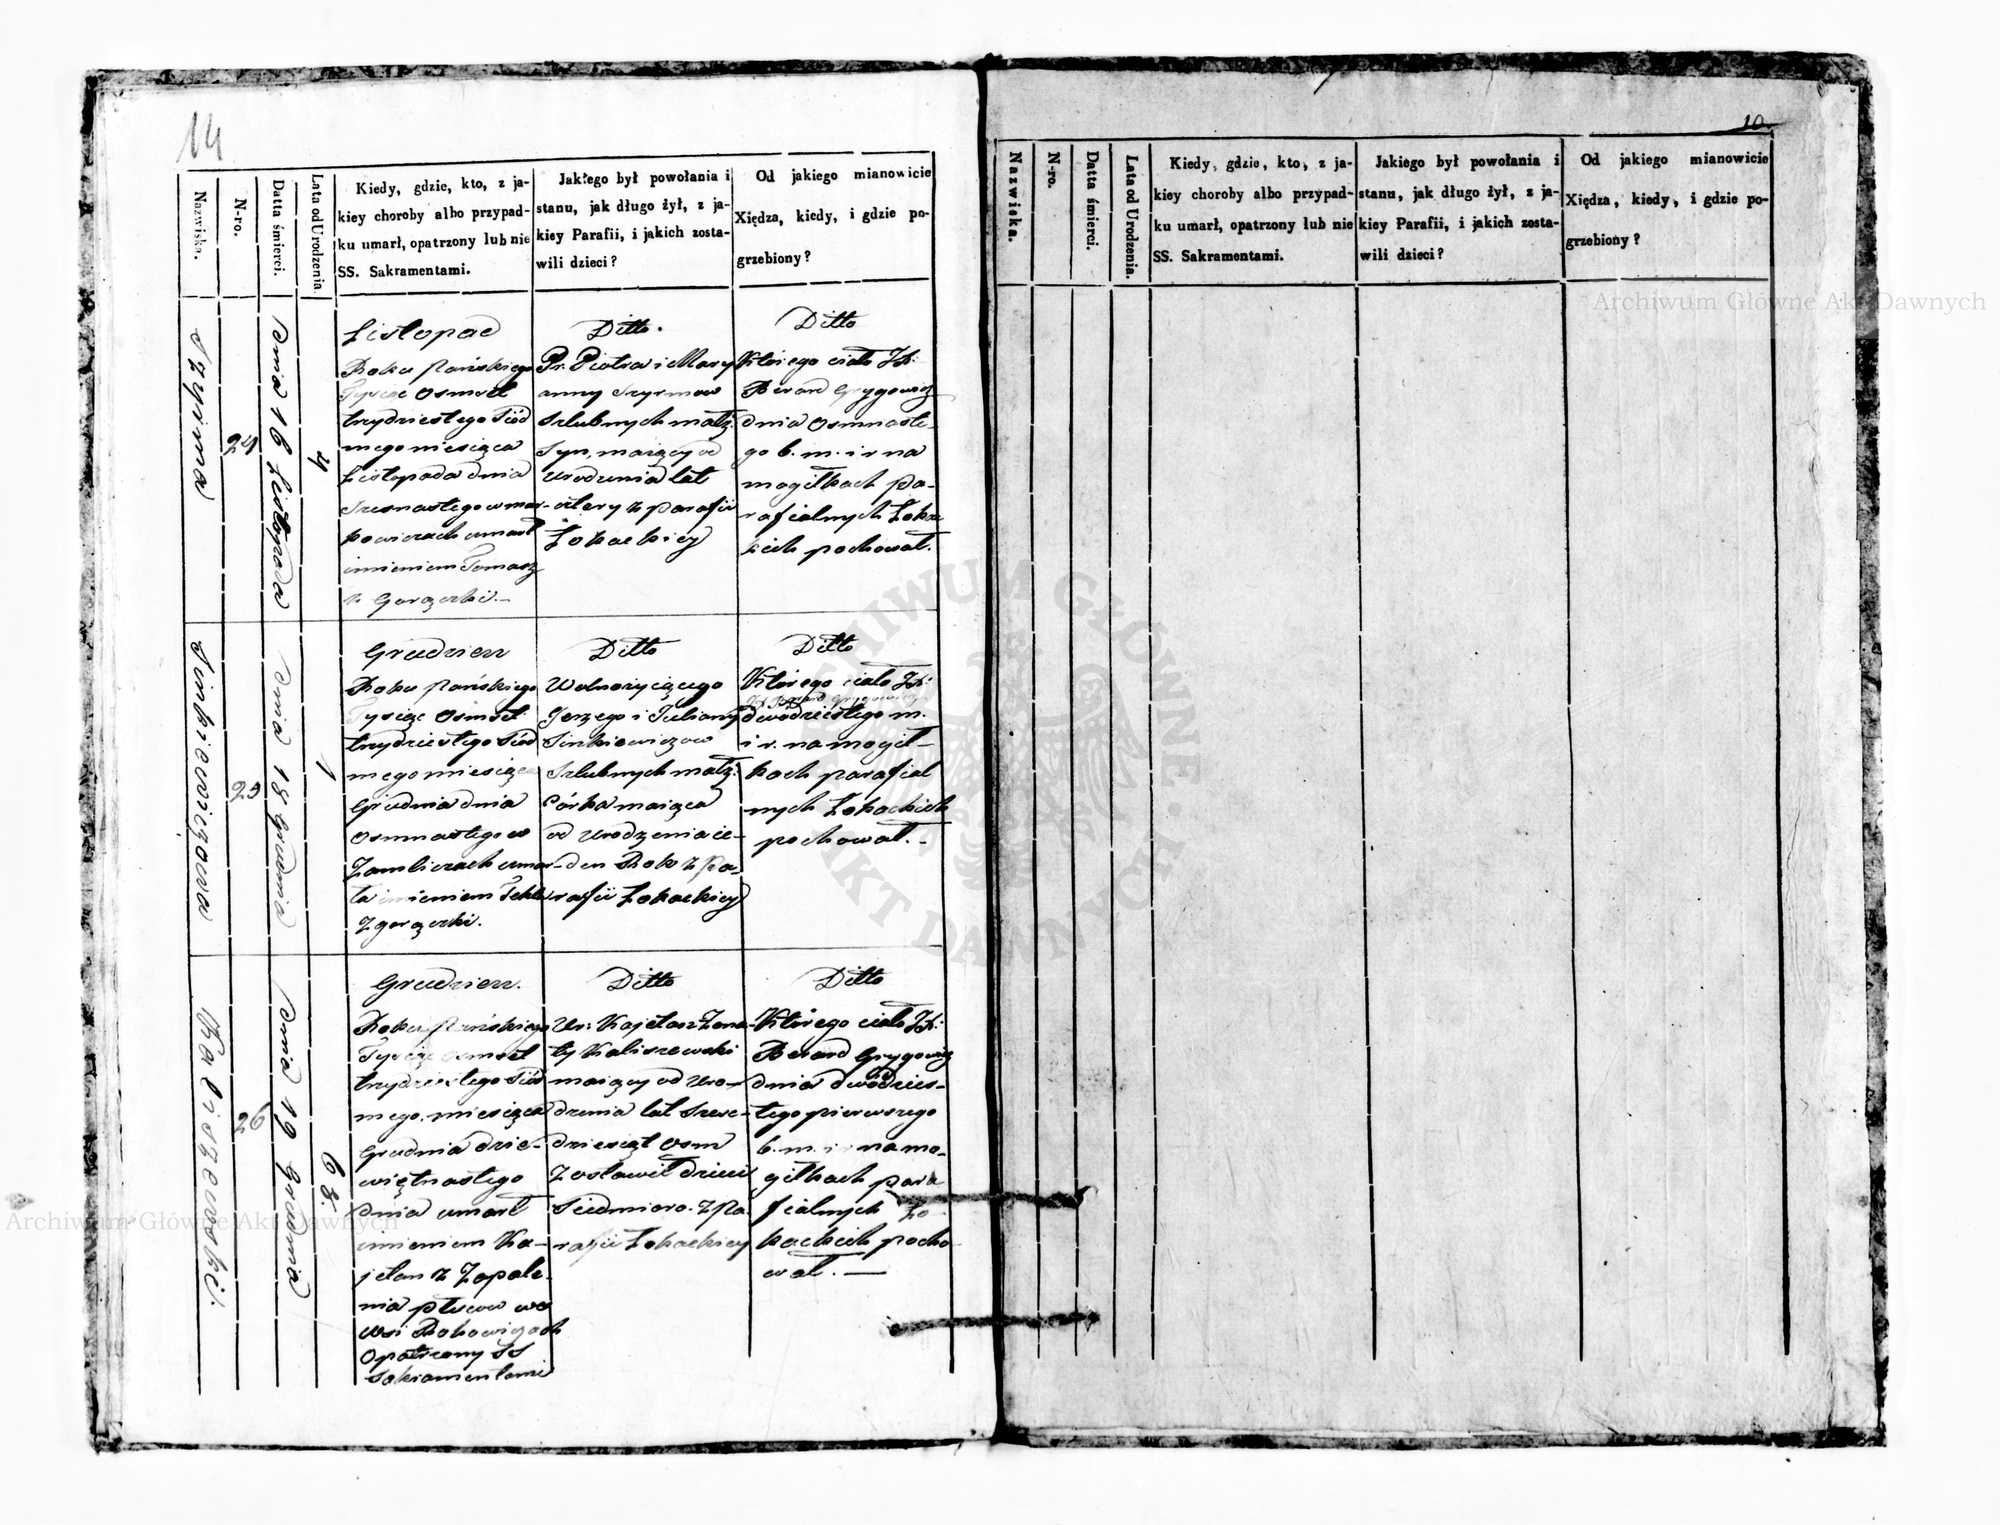 14
Nazwiska.
N-ro.
Datta śmierci.
Lata od Urodzenia.
Kiedy, gdzie, kto, z ja-
kiey choroby albo przypad-
ku umarł, opatrzony lub nie
SS. Sakramentami.
Jakiego był powołania i
stanu, jak długo żył, z ja-
kiey Parafii, i jakich zosta-
wili dzieci?
Od jakiego mianowicie
Xiędza, kiedy, i gdzie po-
grzebiony?
Szyrma
24
Dnia 16 Listopada
4
Listopad
Roku Pańskiego
Tysiąc Osmset
trzydziestego Siód
mego miesiąca
Listopada dnia
Szesnastego w mar-
kowiczach umarł
imieniem Tomasz
z Gorączki.-
Ditto.
Pr. Piotra i Mary
anny Szyrmow
Szlubnych małż:
Syn, maiący od
urodzenia lat
cztery z parafii
Łokackiéy
Ditto
Którego ciało JX:
Berard Grygowicz
dnia Osmnaste-
go b. m. i r na
mogiłkach pa-
rafialnych Łokac
kich pochował.
Sinkiewiczowa
25
Dnia 18 Grudnia
1
Grudzień
Roku Pańskiego
Tysiąc Osmset
trzydziestego Siód
mego miesiąca
Grudnia dnia
Osmnastego w
Zamliczach umar-
ła imieniem Tekla
Z gorączki.
Ditto
Wolnożyiącego
Jerzego i Julianny
Sinkiewiczow
Szlubnych małż:
Córka maiąca
od urodzenia ie-
den Rok z Pa-
rafii Łokackiey
Ditto
Którego ciało JX:
JX Berard Grygowicz
dwódziestego m.
i r. na mogił-
kach parafial
nych Łokackich
pochował.-
Kaliszewski.
26
Dnia 19 Grudnia
68
Grudzień.
Roku Pańskiego
Tysiąc osmset
trzydziestego Siód
mego. miesiąca
Grudnia dzie-
więtnastego
dnia umarł
imieniem Ka-
jetan z Zapale-
nia płucow we
wsi Rakowiczach
Opatrzony SS
Sakramentami
Ditto
Ur: Kajetan Żona-
ty Kaliszewski
maiący od Uro-
dzenia lat Szesc-
dziesiąt Osm
Zostawił dzieci
Siedmioro. z Pa.
rafii Łokackiey
Ditto
Którego ciało JX:
Berard Grygowicz
dnia dwódzies-
tego pierwszego
b. m. i r na mo-
giłkach para
fialnych Ło-
kackich pocho
wał.—
10.
Nazwiska.
N-ro.
Datta śmierci.
Lata od Urodzenia.
Kiedy, gdzie, kto, z ja-
kiey choroby albo przypad-
ku umarł, opatrzony lub nie
SS. Sakramentami.
Jakiego był powołania i
stanu, jak długo żył, z ja-
kiey Parafii, i jakich zosta-
wili dzieci?
Od jakiego mianowicie
Xiędza, kiedy, i gdzie po-
grzebiony?
Archiwum Główne Akt Dawnych
Archiwum Główne Akt Dawnych
ARCHIWUM GŁÓWNE AKT DAWNYCH